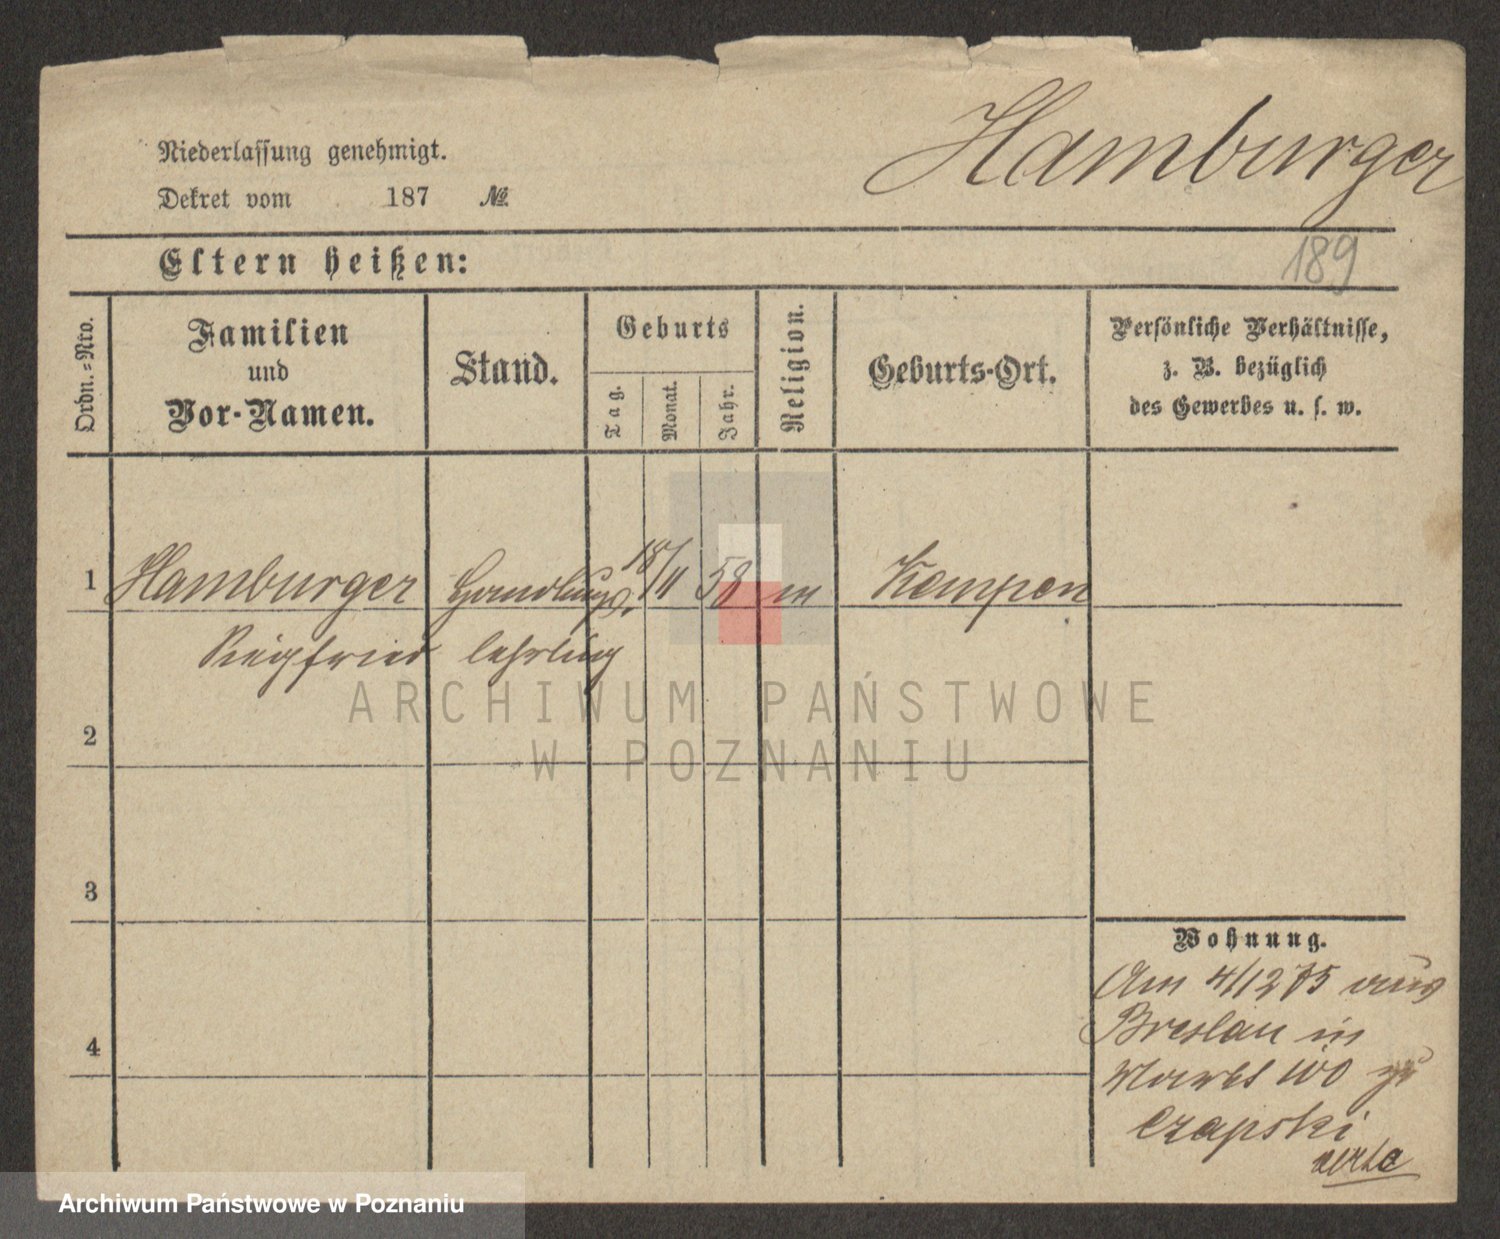 Hamburger
Niederlassung genehmigt.
Dekret vom 187 №
189
Eltern heißen:
Ordn.=Nro.
Familien
und
Vor-Namen.
Stand.
Geburts
Tag.
Monat.
Jahr.
Religion.
Geburts-Ort.
Persönliche Verhältnisse,
z. B. bezüglich
des Gewerbes u. s. w.
1 Hamburger Handlungs 18/11 58 m Kempen
Siegfried lehrling
2
3
4
Wohnung.
Am 4/12 75 aus
Breslau in
Markt 100 zu
Czapski
ARCHIWUM PAŃSTWOWE
W POZNANIU
Archiwum Państwowe w Poznaniu